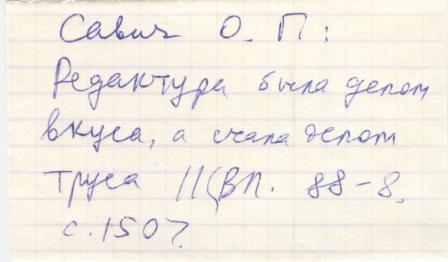 Савич О. П:
Редактура была делом
вкуса, а стала делом
труса //ВЛ. 88-8,
с. 150?